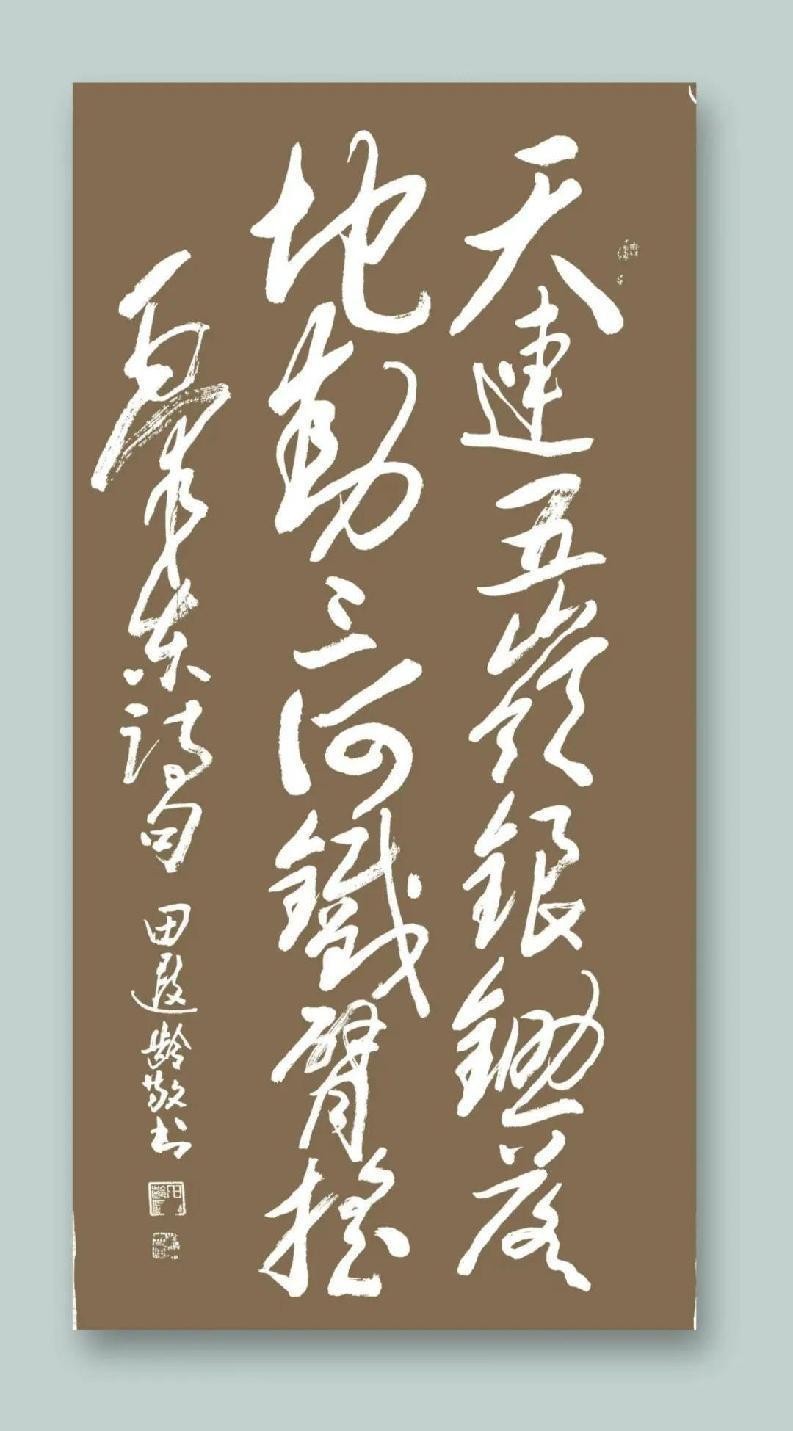 天連五嶺銀鋤落
地動三河鐵臂搖
毛澤東詩句 田遐齡敬书